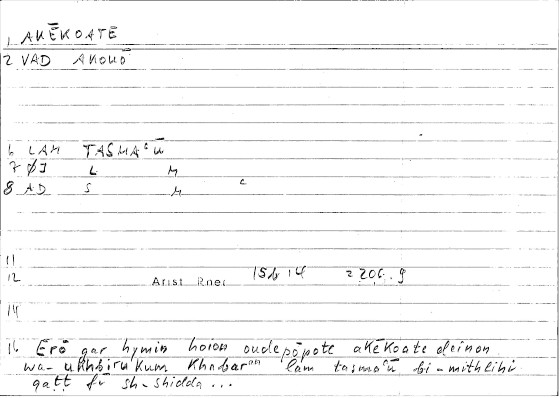 1 AKĒKOATE
2 VAD AKOUŌ
6 LAM TASMAᶜū
7 ØJ L M
8 AD S M c
11
12 Arist Rhet 15b 14 = 206. 9
14
16 Erō gar hymin hoion oudepōpote akēkoate deinon
wa- ukhbirukum khabaran lam tasmaᶜū bi-mithlihi
qatt fī sh-shidda ...